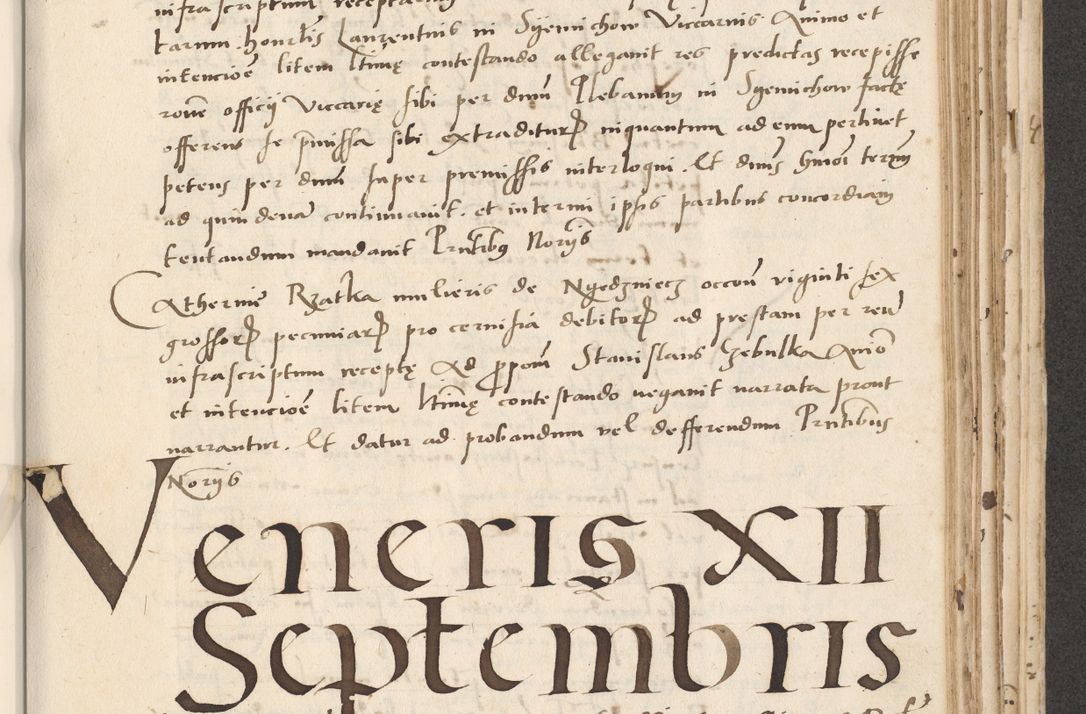 infrascriptum
tarum. honrlis Laurentius in Sÿemichow Viccarius Animo et
intencioē litem ltimę contestando allegauit res predictas recepisse
roñe officij Viccarię sibi per dnm Plebanum in Sÿemichow factę
offerens se p̄missa sibi extraditurꝝ inquantum ad eum pertinet
petens per dnm super premissis interloqui. Et dnus hmōi termm
ad quindenā continuauit. et interim ipsis partibus concordiam
tentandum mandauit Pntibꝰ Norijs
Catherinē Rzatka mulieris de Nÿedzniecz occoñ viginti sex
grossorꝝ pecuniarꝝ pro ceruisia debitorꝝ ad prestam per reū
infrascriptum receptę Ad ꝓpoñ Stanislaus Czebulka Anio
et intencioē litem ltimę contestando negauit narrata prout
narrantur. Et datur ad probandum vel defferendum Pntibus
Norijs
Veneris XII
Septembris